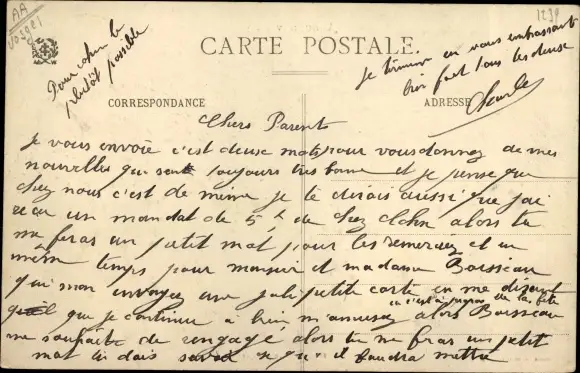 AA
Vosges
1239
Pour cela le
plutôt possible
CARTE POSTALE.
je termine en vous embrassant
bien fort tous les deuse
Charles
CORRESPONDANCE
ADRESSE
Chers Parents
je vous envoie c'est deuse mots pour vous donnez de mes
nouvelles qui sont toujours très bonne et je pense que
chez nous c'est de même je te dirais aussi que j'ai
reçu un mandat de 5 f de chez alors tu
me feras un petit mot pour les remerciez et en
même temps pour monsieur et madame Boisseau
qui mon envoyez une joli petite carte en me disant
que je continue a bien m'amusez alors Boisseau
me souhaite de rengagé alors tu me feras un petit
mot tu dois se qu'il faudra mettre